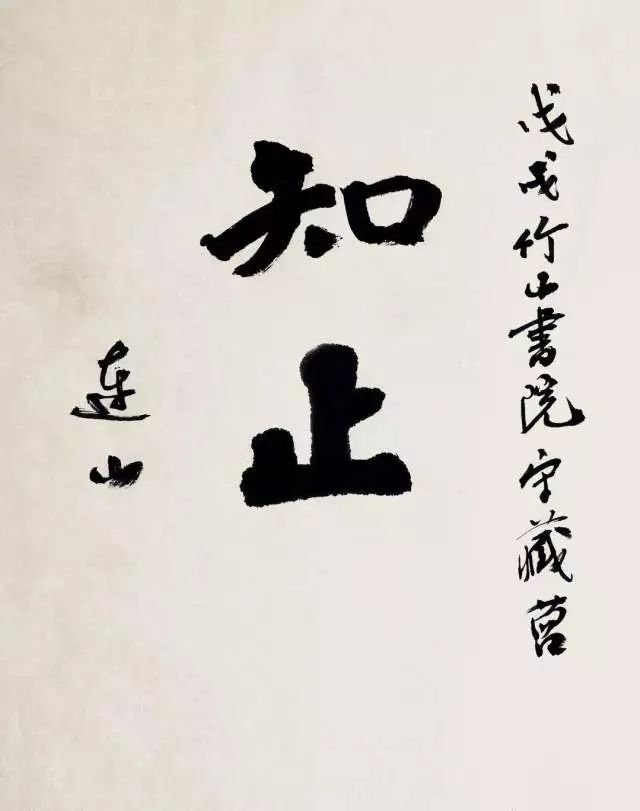 戊戌竹山書院守藏
知止
連山